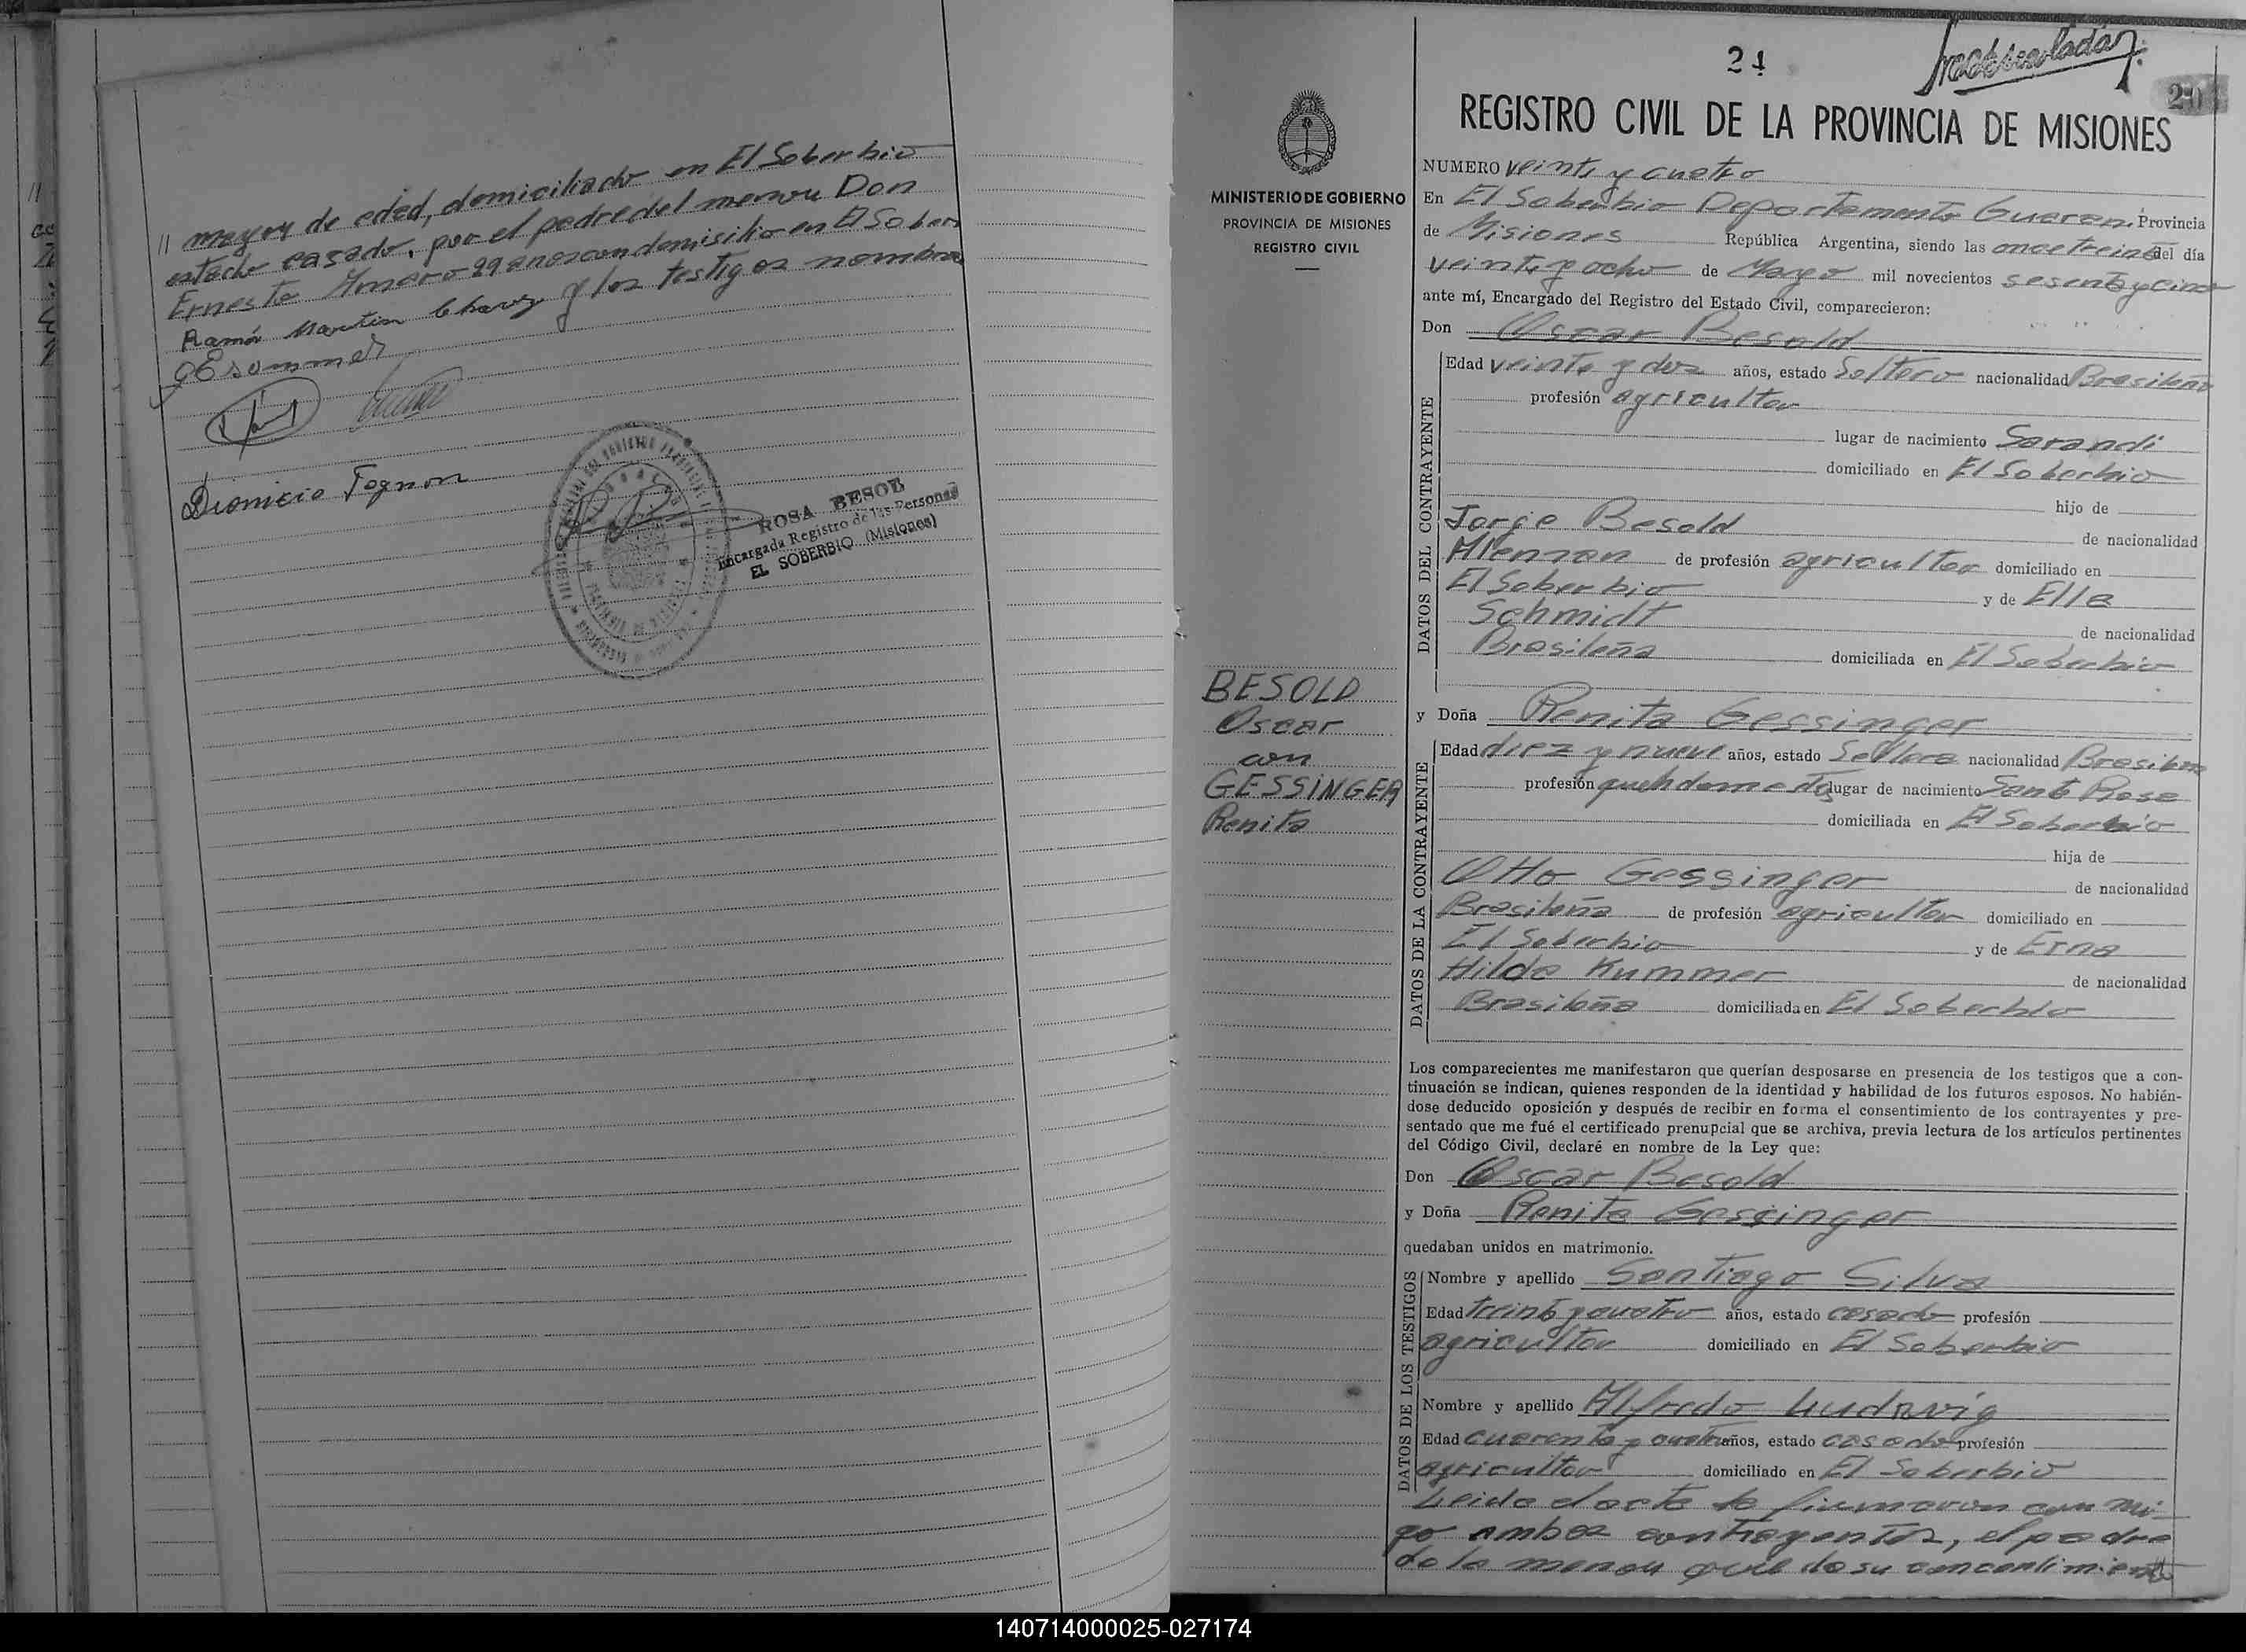 // mayor de edad, domiciliado en El Soberbio
estado casado, por el padre del menor Don
Ernesto Amaro 29 anos con domisilio en El Sober
y los testigos nombra
Ramón Martin Chavez
gEsommer
Dionicio Tognon
ROSA BESOL
Encargada Registro de las Personas
EL SOBERBIO (Misiones)
24
20
REGISTRO CIVIL DE LA PROVINCIA DE MISIONES
MINISTERIO DE GOBIERNO
PROVINCIA DE MISIONES
REGISTRO CIVIL
BESOLD
Oscar
con
GESSINGER
Renita
NUMERO veinte y cuatro
En El Soberbio Departamento Guarani Provincia
de Misiones República Argentina, siendo las once treinta del día
veinte y ocho de Mayo mil novecientos sesenta y cinco
ante mí, Encargado del Registro del Estado Civil, comparecieron:
Don Oscar Besold
DATOS DEL CONTRAYENTE
Edad veinte y dos años, estado Soltero nacionalidad Brasileña
profesión agricultor
lugar de nacimiento Sarandi
domiciliado en El Soberbio
hijo de
Jorge Besold de nacionalidad
Aleman de profesión agricultor domiciliado en
El Soberbio y de Ella
Schmidt de nacionalidad
Brasileña domiciliada en El Soberbio
y Doña Renita Gessinger
DATOS DE LA CONTRAYENTE
Edad diez y nueve años, estado Soltera nacionalidad Brasileña
profesión lugar de nacimiento Santa Rosa
domiciliada en El Soberbio
hija de
Otto Gessinger de nacionalidad
Brasileña de profesión agricultor domiciliado en
El Soberbio y de Erna
Hilda Kummer de nacionalidad
Brasileña domiciliada en El Soberbio
Los comparecientes me manifestaron que querían desposarse en presencia de los testigos que a con-
tinuación se indican, quienes responden de la identidad y habilidad de los futuros esposos. No habién-
dose deducido oposición y después de recibir en forma el consentimiento de los contrayentes y pre-
sentado que me fué el certificado prenupcial que se archiva, previa lectura de los artículos pertinentes
del Código Civil, declaré en nombre de la Ley que:
Don Oscar Besold
y Doña Renita Gessinger
quedaban unidos en matrimonio.
DATOS DE LOS TESTIGOS
Nombre y apellido Santiago Silva
Edad treinta y cuatro años, estado casado profesión
agricultor domiciliado en El Soberbio
Nombre y apellido Alfredo Ludwig
Edad cuarenta y cuatro años, estado casado profesión
agricultor domiciliado en El Soberbio
Leida el acta la firmaron con mi
go ambos contrayentes, el padre
de la menor que da su concentimiento
140714000025-027174